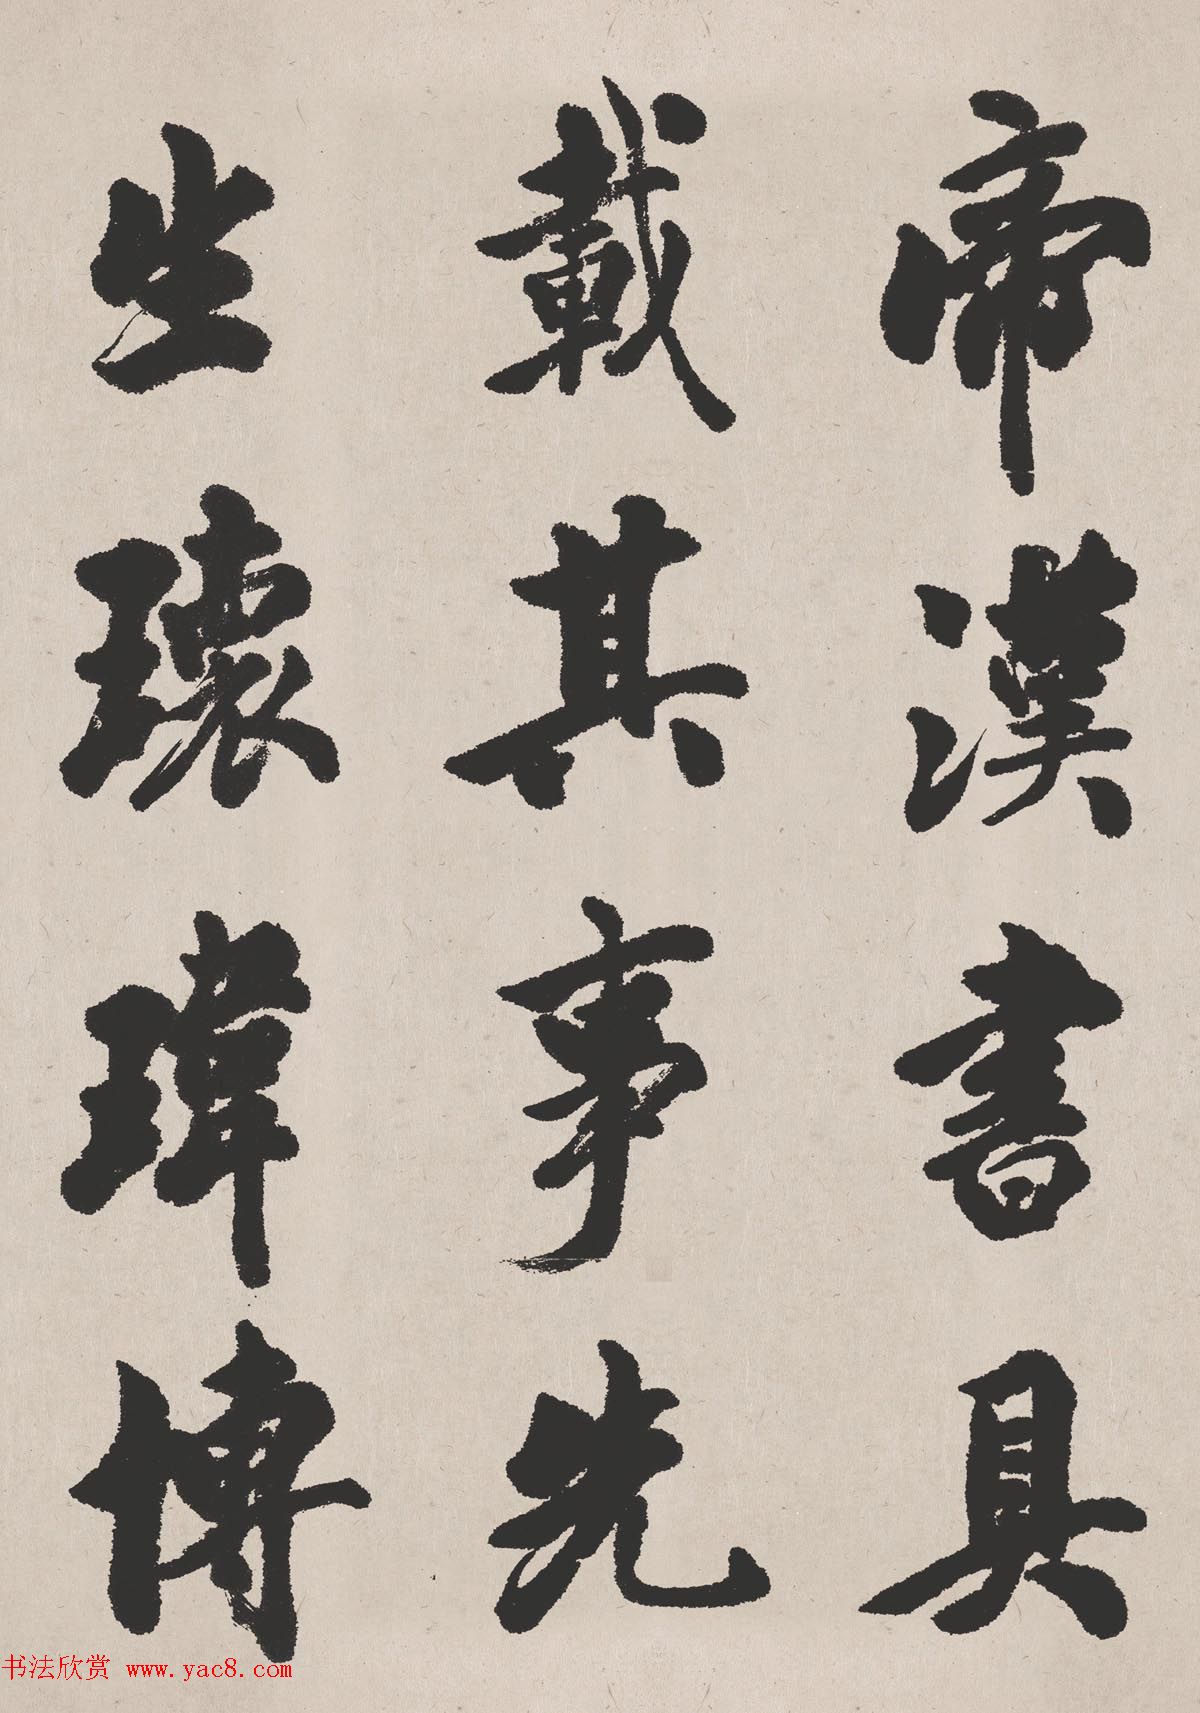 帝漢書具
載其事先
生瓌瑋博
书法欣赏 www.yac8.com